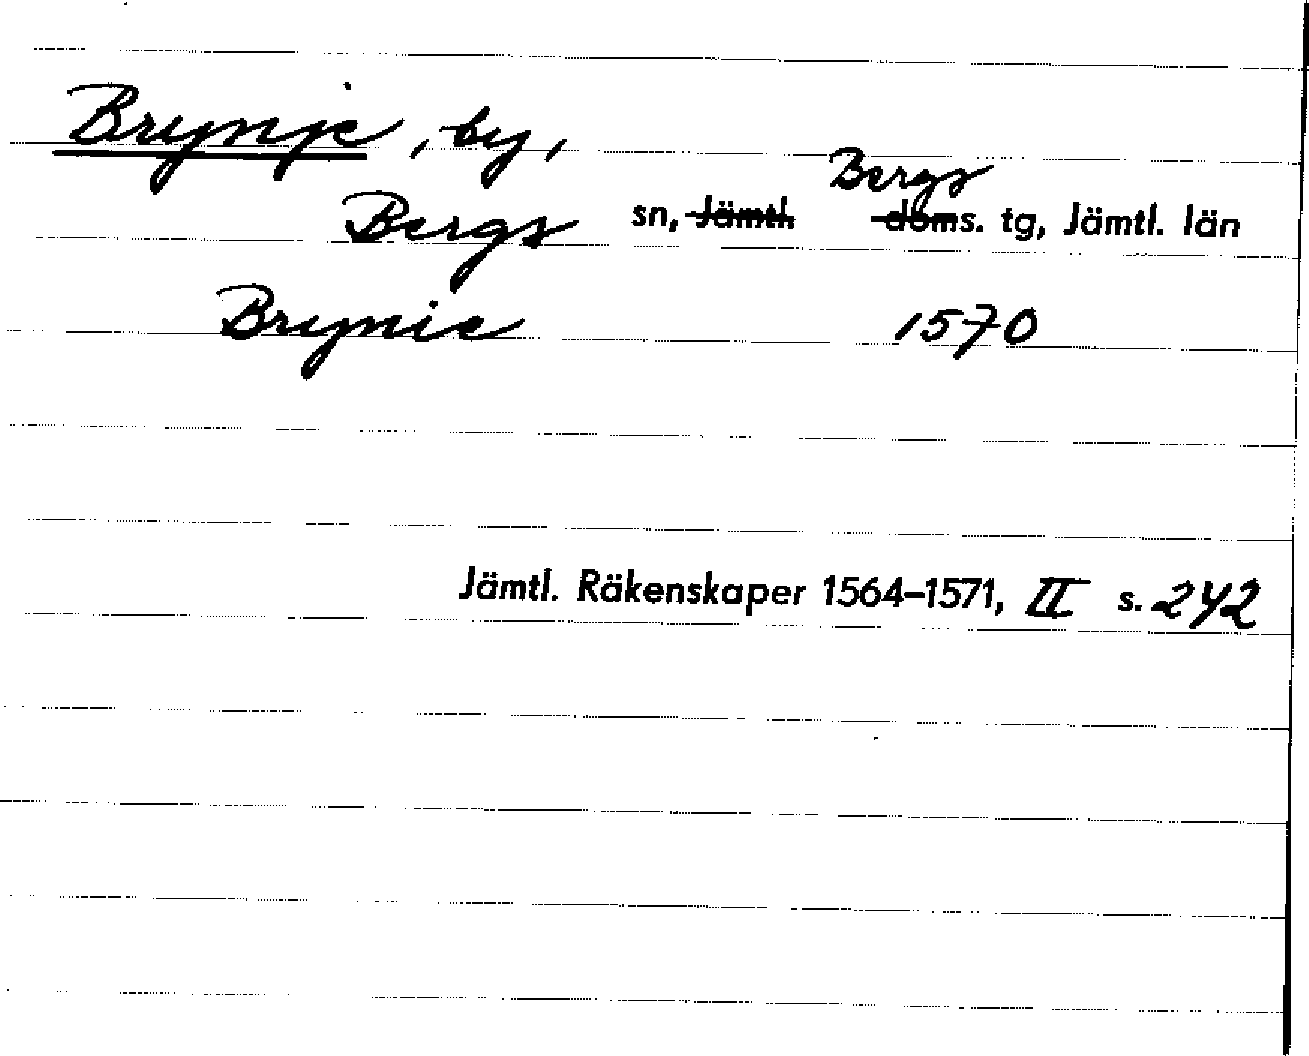 Brynje, by,
Bergs sn, Jämtl. Bergs doms. tg, Jämtl. län
Brynie 1570
Jämtl. Räkenskaper 1564–1571, II s. 242